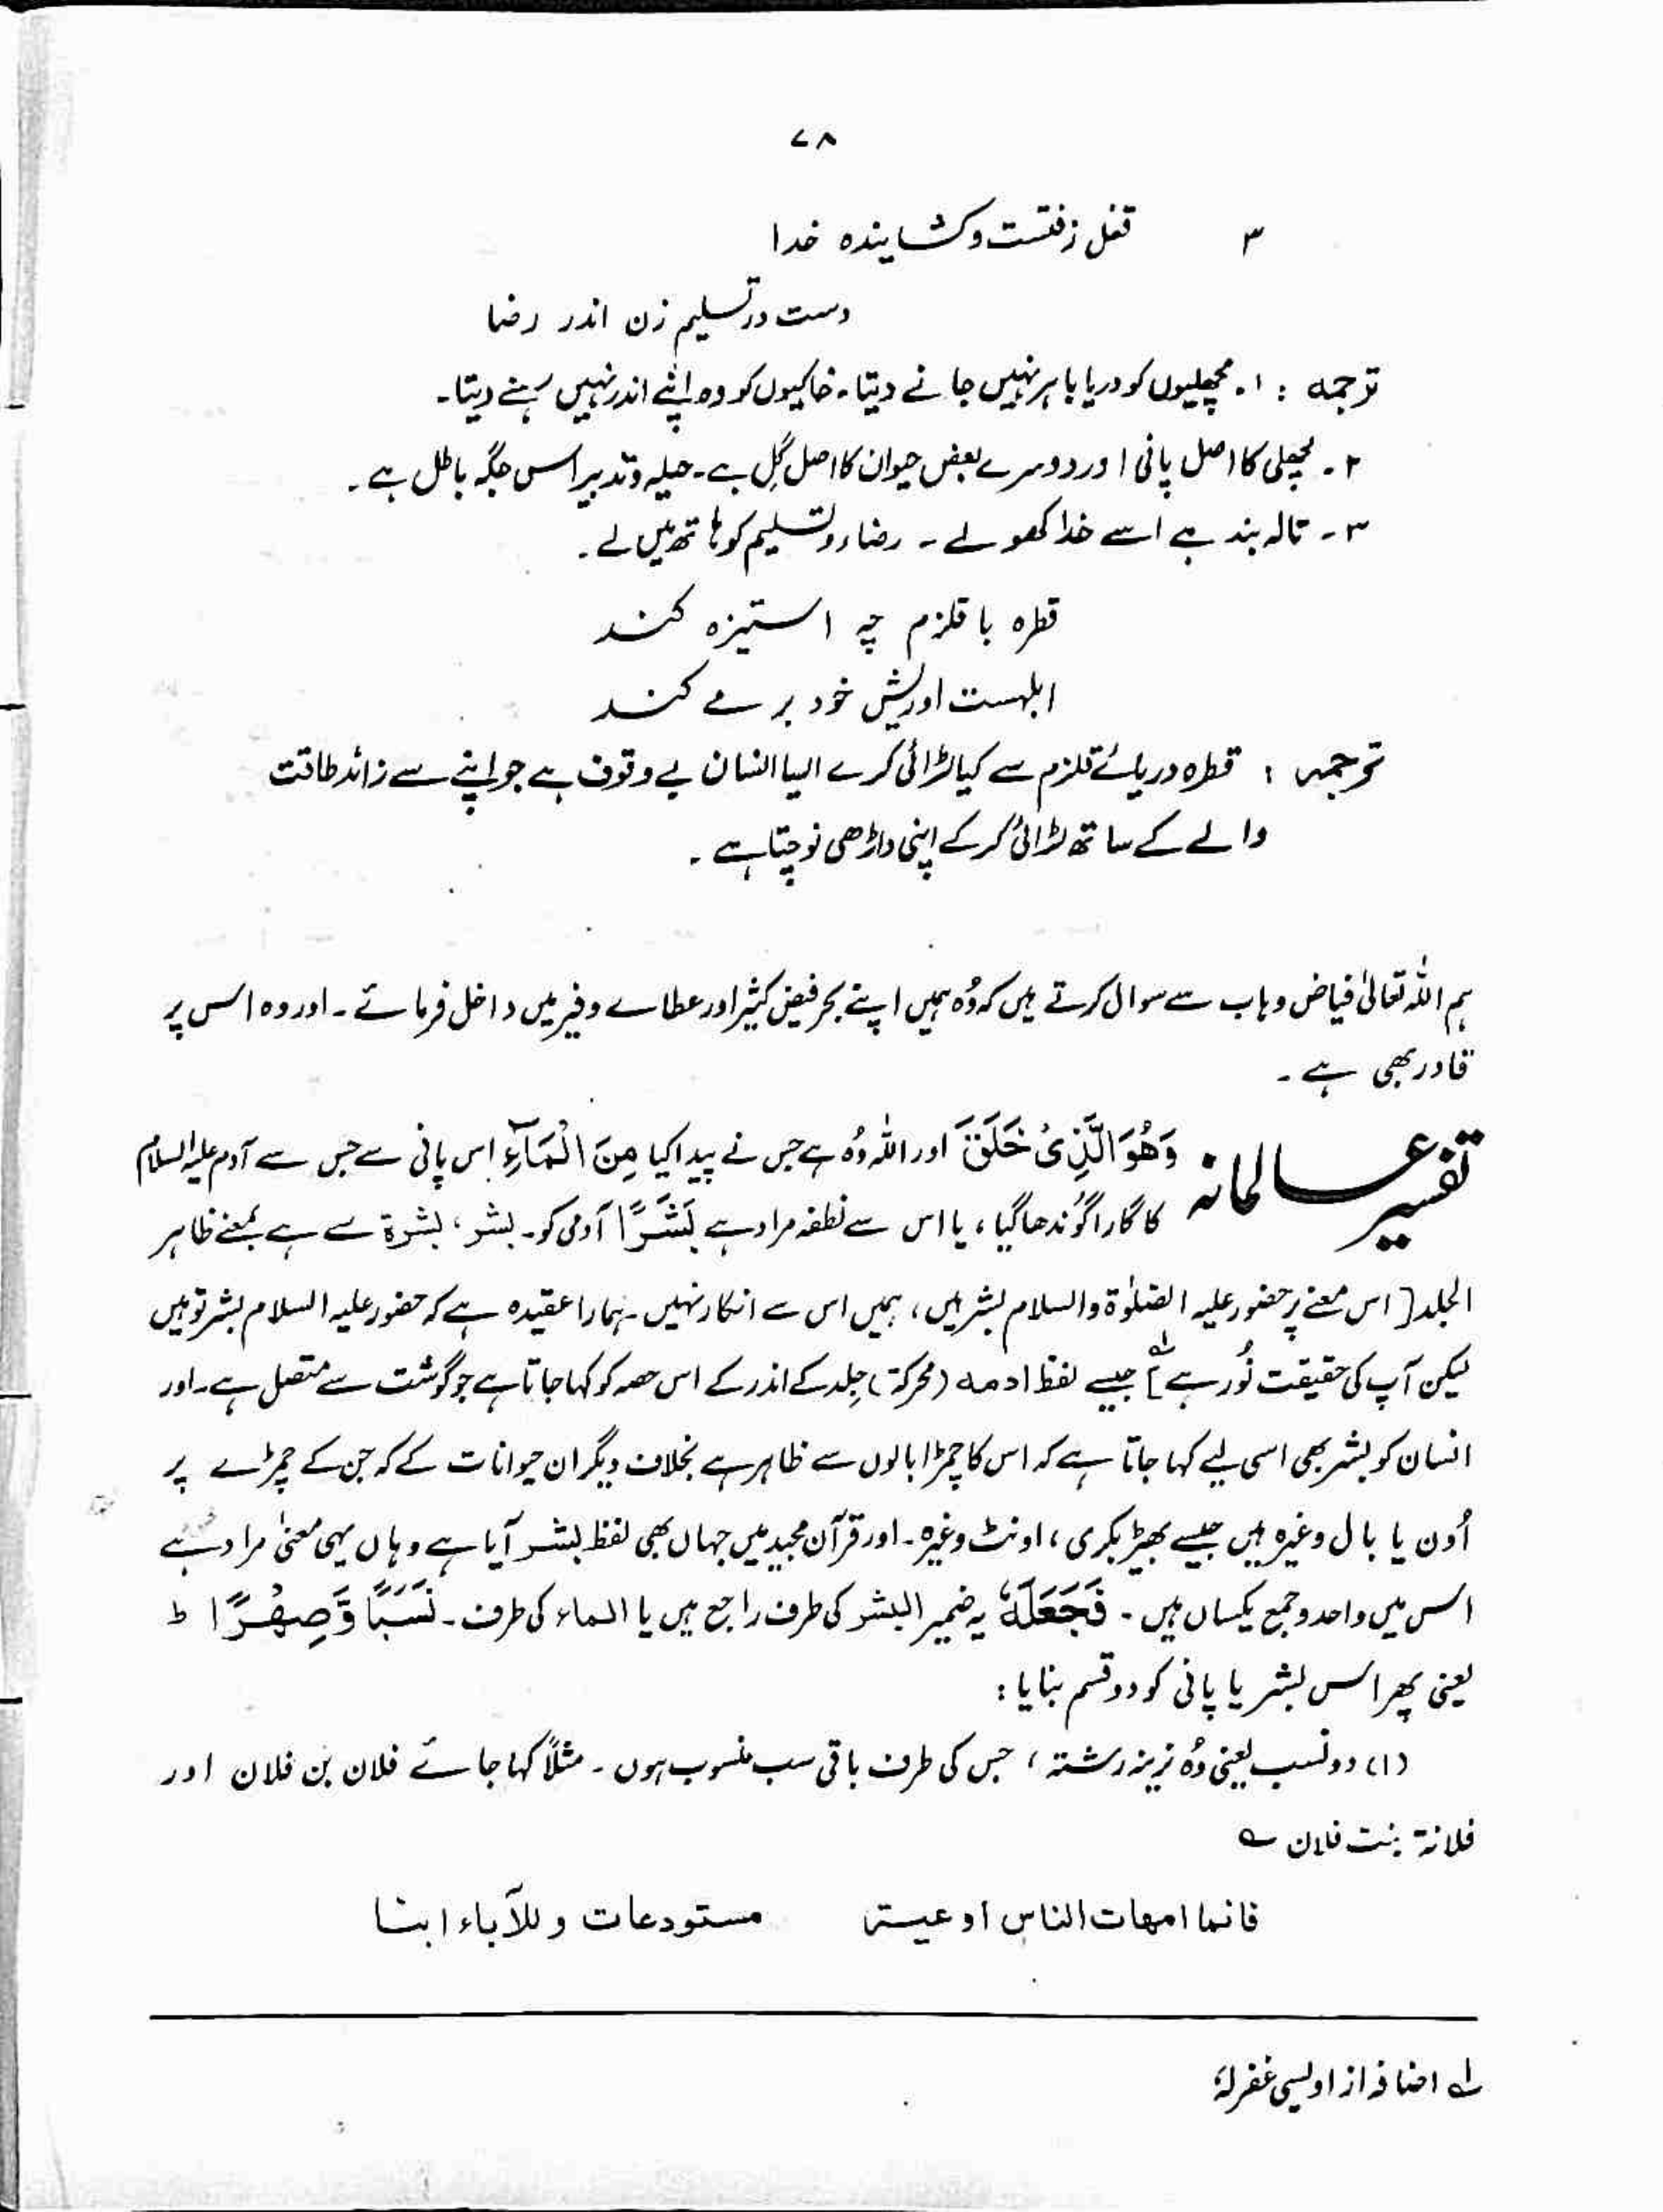 ۷۸
۳ قفل زفتست و کشاینده خدا
دست در تسلیم زن اندر رضا
ترجمہ : ۱۔ مچھلیوں کو دریا باہر نہیں جانے دیتا۔ خاکیوں کو وہ اپنے اندر نہیں رہنے دیتا۔
۲۔ مچھلی کا اصل پانی اور دوسرے بعض حیوان کا اصل گِل ہے۔ حیلہ و تدبیر اس جگہ باطل ہے۔
۳۔ تالہ بند ہے اسے خدا کھولے ۔ رضاء و تسلیم کو ہاتھ میں لے۔
قطرہ با قلزم چہ استیزہ کند
ابلہست او ریش خود بر مے کند
ترجمہ : قطرہ دریائے قلزم سے کیا لڑائی کرے ایسا انسان بے وقوف ہے جو اپنے سے زائد طاقت
والے کے ساتھ لڑائی کرکے اپنی داڑھی نوچتا ہے۔
ہم اللہ تعالیٰ فیاض وہاب سے سوال کرتے ہیں کہ وُہ ہمیں اپنے بحرِ فیض کثیر اور عطاے وفیر میں داخل فرمائے۔ اور وہ اس پر
قادر بھی ہے۔
تفسیر عالمانہ وَهُوَ الَّذِیْ خَلَقَ اور اللہ وُہ ہے جس نے پیدا کیا مِنَ الْمَآءِ اس پانی سے جس سے آدم علیہ السلام
کا گارا گوُندھا گیا ، یا اس سے نطفہ مراد ہے بَشَرًا آدمی کو۔ بشر ، بشرۃ سے ہے بمعنے ظاہر
الجلد [ اس معنے پر حضور علیہ الصلوٰۃ والسلام بشر ہیں ، ہمیں اس سے انکار نہیں۔ ہمارا عقیدہ ہے کہ حضور علیہ السلام بشر تو ہیں
لیکن آپ کی حقیقت نُور ہے ]؂۱ جیسے لفظ ادمہ (محرکۃ) جِلد کے اندر کے اس حصہ کو کہا جاتا ہے جو گوشت سے متصل ہے۔ اور
انسان کو بشر بھی اسی لیے کہا جاتا ہے کہ اس کا چمڑا بالوں سے ظاہر ہے بخلاف دیگر ان حیوانات کے کہ جن کے چمڑے پر
اُون یا بال وغیرہ ہیں جیسے بھیڑ بکری ، اونٹ وغیرہ۔ اور قرآن مجید میں جہاں بھی لفظ بشر آیا ہے وہاں یہی معنیٰ مراد ہے
اس میں واحد و جمع یکساں ہیں ۔ فَجَعَلَهٗ یہ ضمیر البشر کی طرف راجع ہیں یا الماء کی طرف۔ نَسَبًا وَّصِهْرًا ط
یعنی پھر اس بشر یا پانی کو دو قسم بنایا :
(۱) دو نسب یعنی وُہ نرینہ رشتہ ، جس کی طرف باقی سب منسوب ہوں ۔ مثلاً کہا جائے فلان بن فلان اور
فلانۃ بنت فلان ؎
فانما امھات الناس اوعیۃ مستودعات وللآباء ابنا
؂۱ اضافہ از اویسی غفرلہٗ